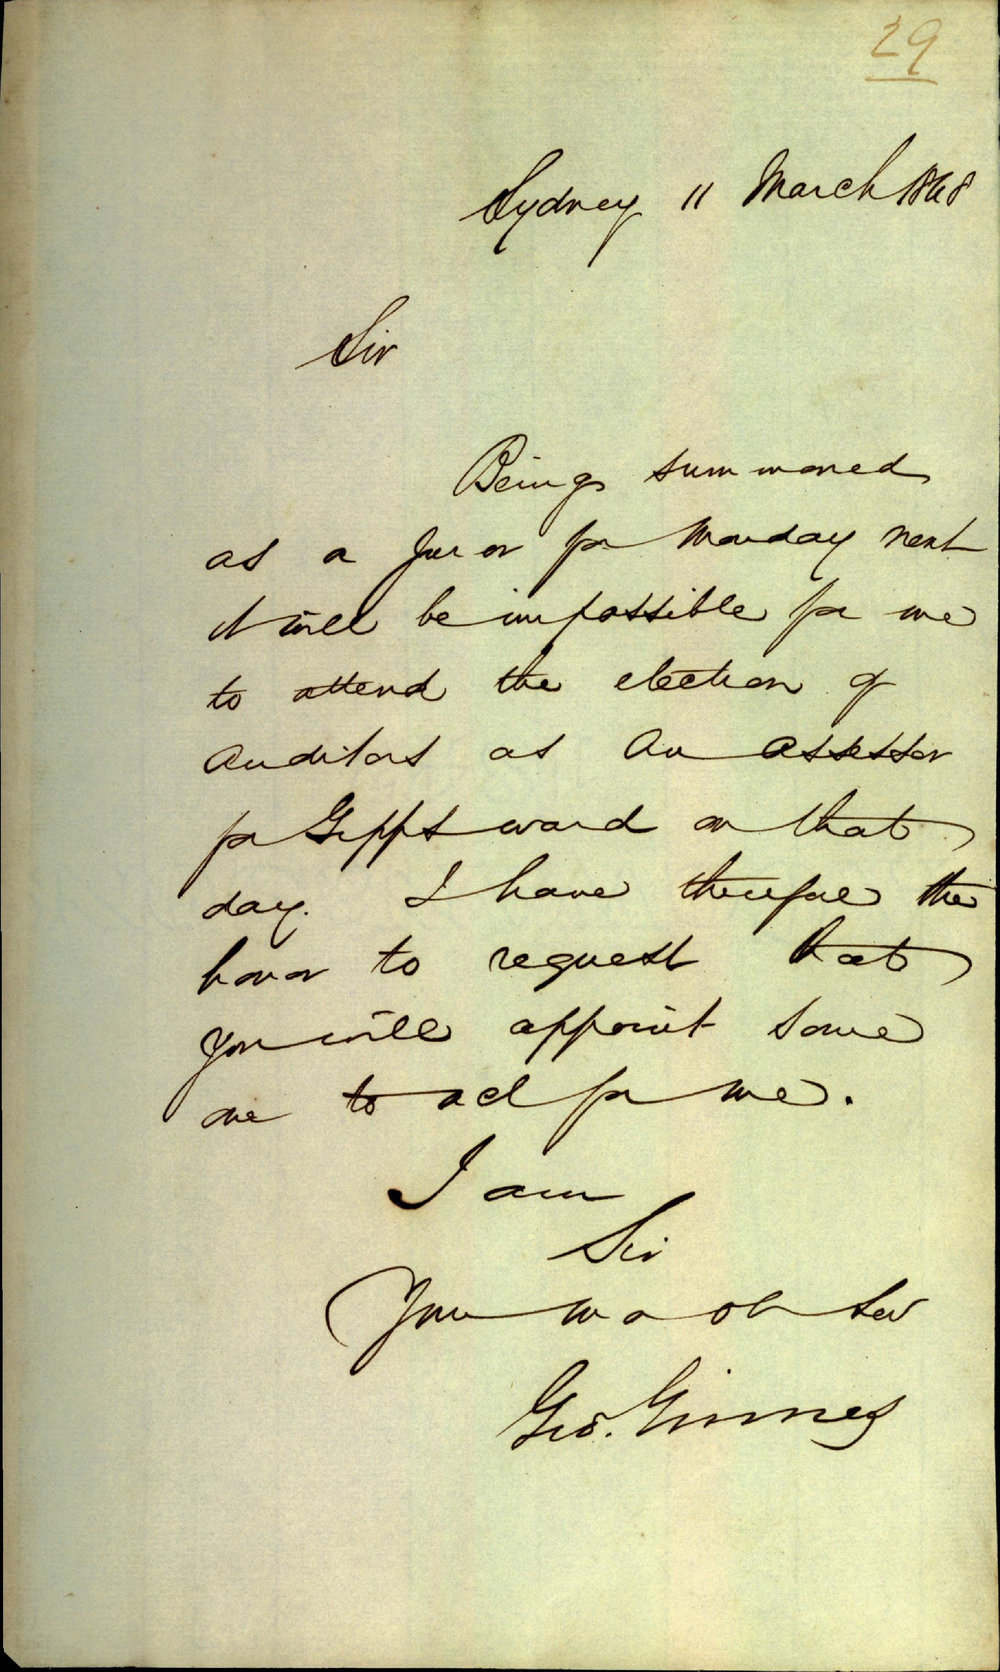 29
Sydney 11 March 1868
Sir
Being summoned
as a Juror for Monday next
it will be impossible for me
to attend the election of
Auditors as an assessor
for Gipps ward on that
day. I have therefore the
honor to request that
you will appoint some
one to act for me.
I am
Sir
Your mo ob Ser
Geo.